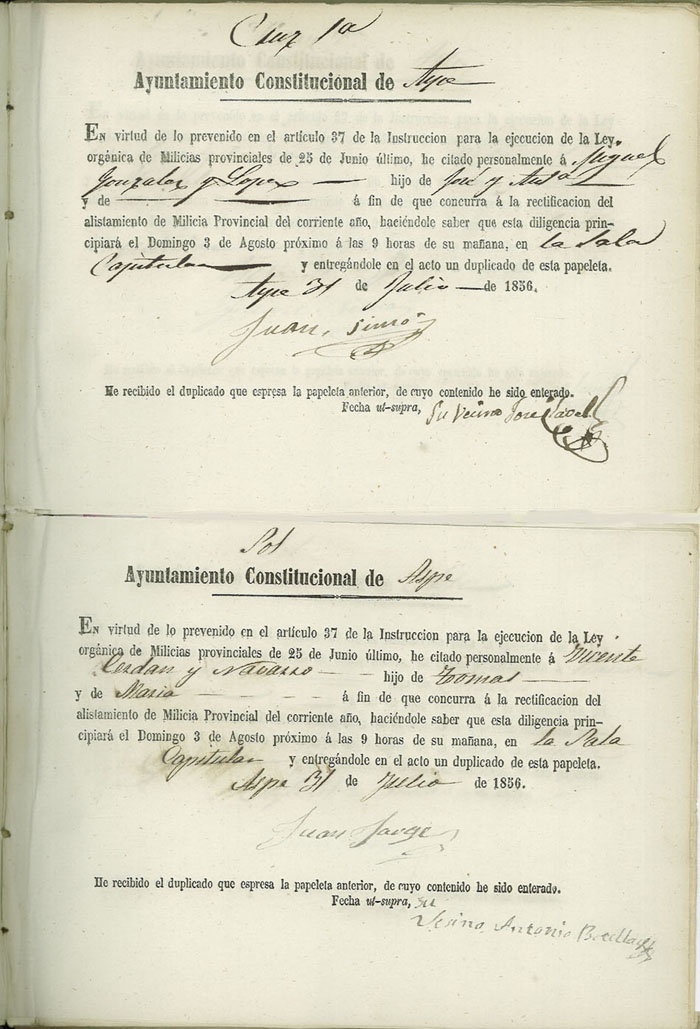 Cruz 1a
Ayuntamiento Constitucional de Aspe
En virtud de lo prevenido en el artículo 37 de la Instruccion para la ejecucion de la Ley
orgánica de Milicias provinciales de 25 de Junio último, he citado personalmente á Miguel
Gonzalez y Lopez hijo de José y
y de á fin de que concurra á la rectificacion del
alistamiento de Milicia Provincial del corriente año, haciéndole saber que esta diligencia prin-
cipiará el Domingo 3 de Agosto próximo á las 9 horas de su mañana, en la Sala
Capitular y entregándole en el acto un duplicado de esta papeleta.
Aspe 31 de Julio de 1856.
Juan Simó
He recibido el duplicado que espresa la papeleta anterior, de cuyo contenido he sido enterado.
Fecha ut-supra, Su Vecino José
Sol
Ayuntamiento Constitucional de Aspe
En virtud de lo prevenido en el artículo 37 de la Instruccion para la ejecucion de la Ley
orgánica de Milicias provinciales de 25 de Junio último, he citado personalmente á Vicente
Cerdan y Navarro hijo de Tomas
y de Maria á fin de que concurra á la rectificacion del
alistamiento de Milicia Provincial del corriente año, haciéndole saber que esta diligencia prin-
cipiará el Domingo 3 de Agosto próximo á las 9 horas de su mañana, en la Sala
Capitular y entregándole en el acto un duplicado de esta papeleta.
Aspe 31 de Julio de 1856.
Juan Jorge
He recibido el duplicado que espresa la papeleta anterior, de cuyo contenido he sido enterado.
Fecha ut-supra, su
Vesino Antonio Botella